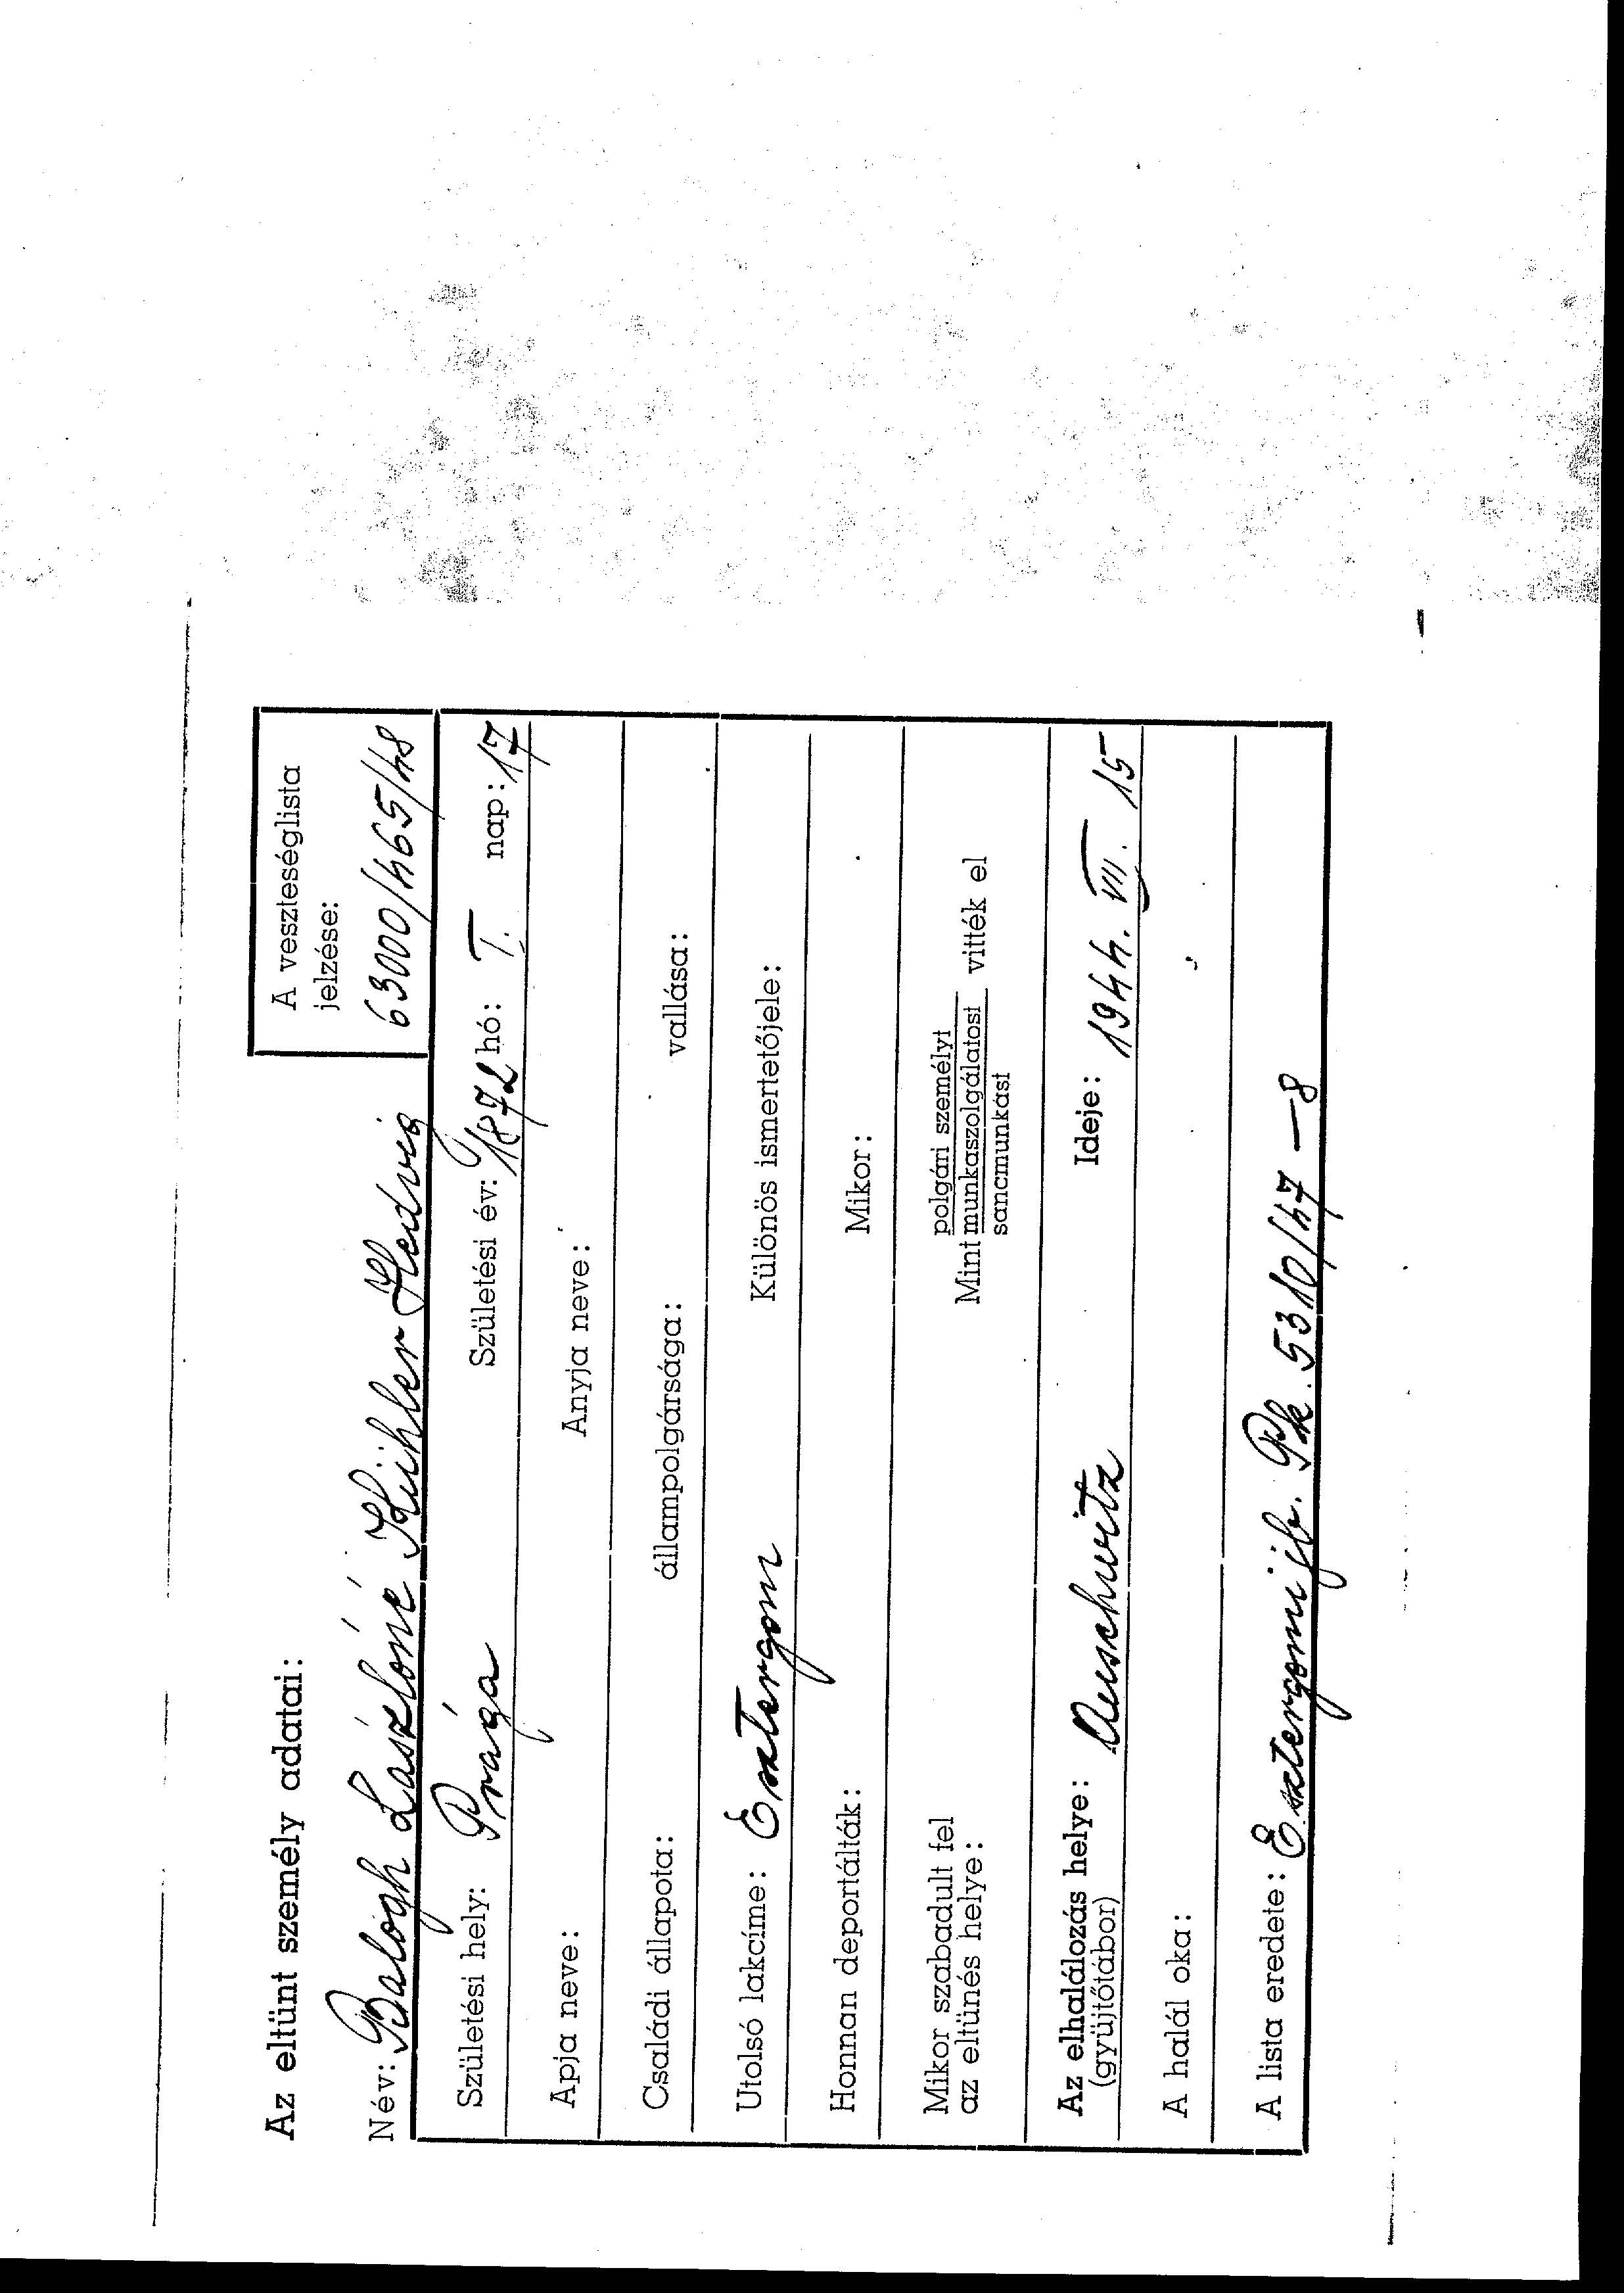 Az eltünt személy adatai:
A veszteséglista
jelzése:
63000/465/48
Név: Balogh Lászlóné Kühler Hedvig
Születési hely: Prága Születési év: 1872 hó: I. nap: 17
Apja neve: Anyja neve:
Családi állapota: állampolgársága: vallása:
Utolsó lakcíme: Esztergom Különös ismertetőjele:
Honnan deportálták: Mikor:
Mikor szabadult fel
az eltünés helye:
polgári személyt
Mint munkaszolgálatost vitték el
sáncmunkást
Az elhalálozás helye: Auschwitz Ideje: 1944. VII. 15
(gyüjtőtábor)
A halál oka:
A lista eredete: Esztergomi jb. Pk. 5310/47 – 8